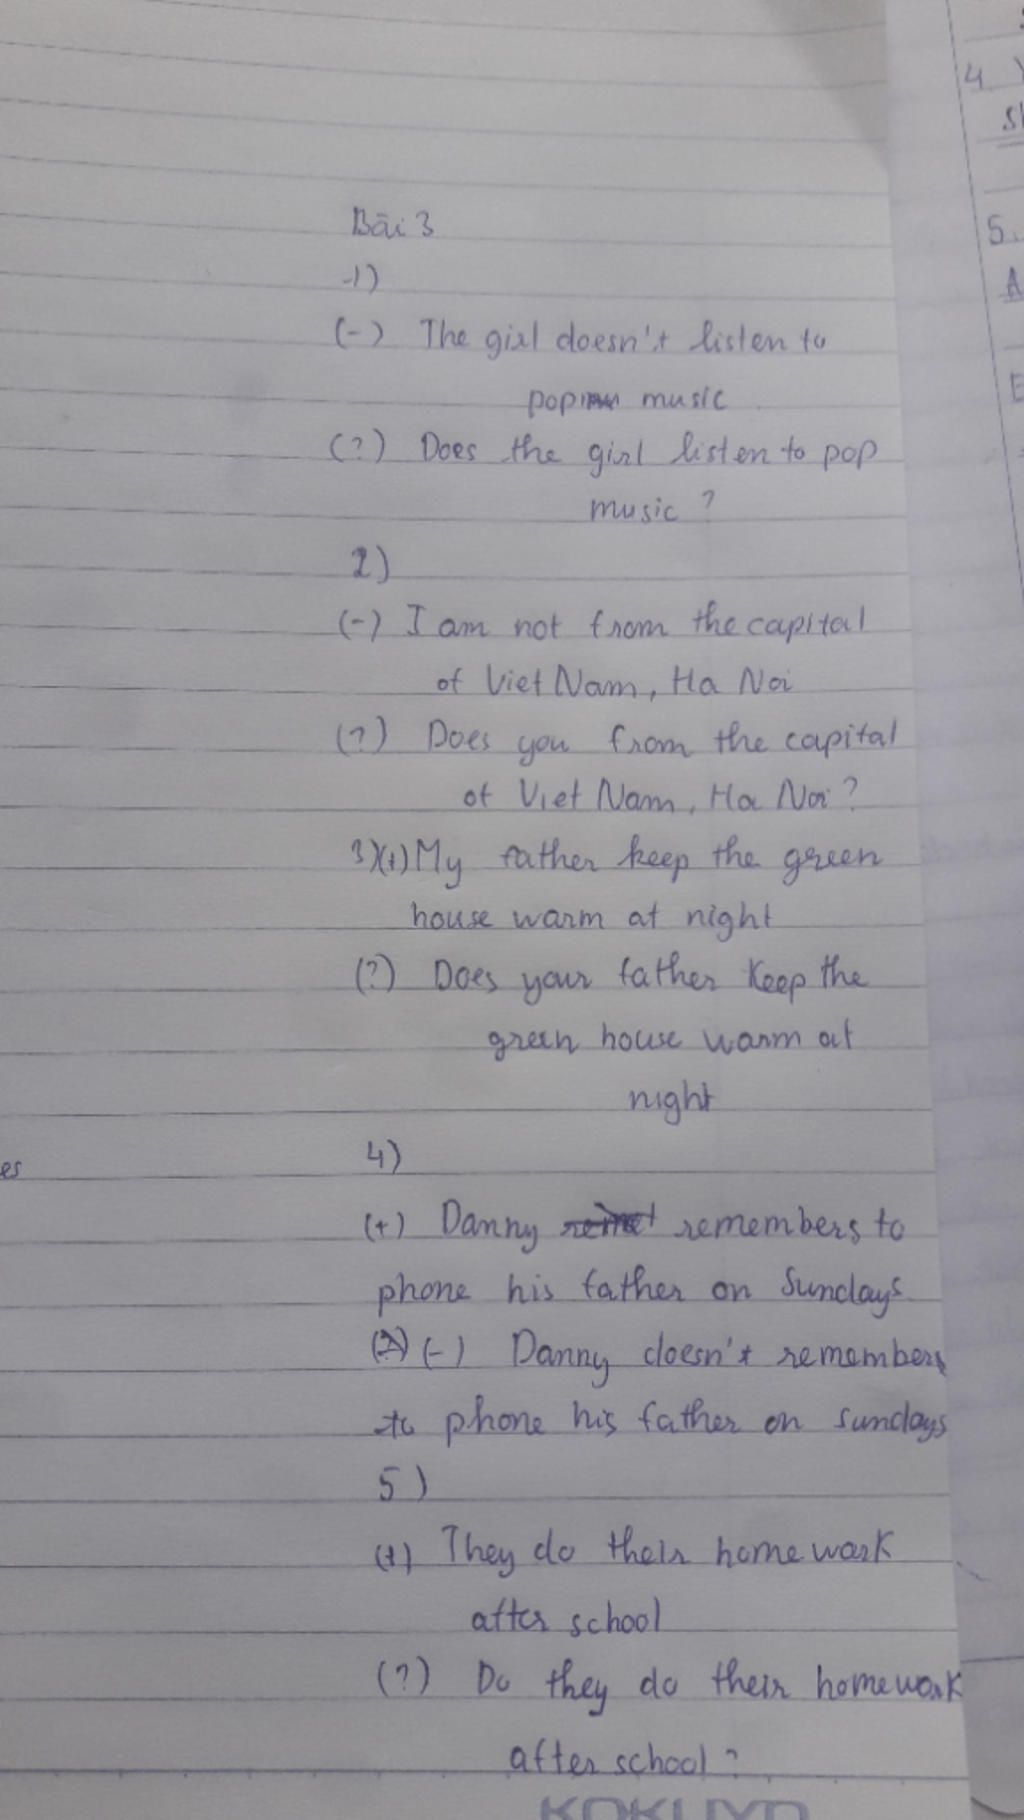 Bài 3
1)
(-) The girl doesn't listen to
pop music
(?) Does the girl listen to pop
music ?
2)
(-) I am not from the capital
of Viet Nam, Ha Noi
(?) Does you from the capital
of Viet Nam, Ha Noi ?
3)(+) My father keep the green
house warm at night
(?) Does your father keep the
green house warm at
night
4)
(+) Danny remembers to
phone his father on Sundays
(-) Danny doesn't remember
to phone his father on sundays
5)
(+) They do their home work
after school
(?) Do they do their homework
after school ?
KOKUYO
es
4
5.
A